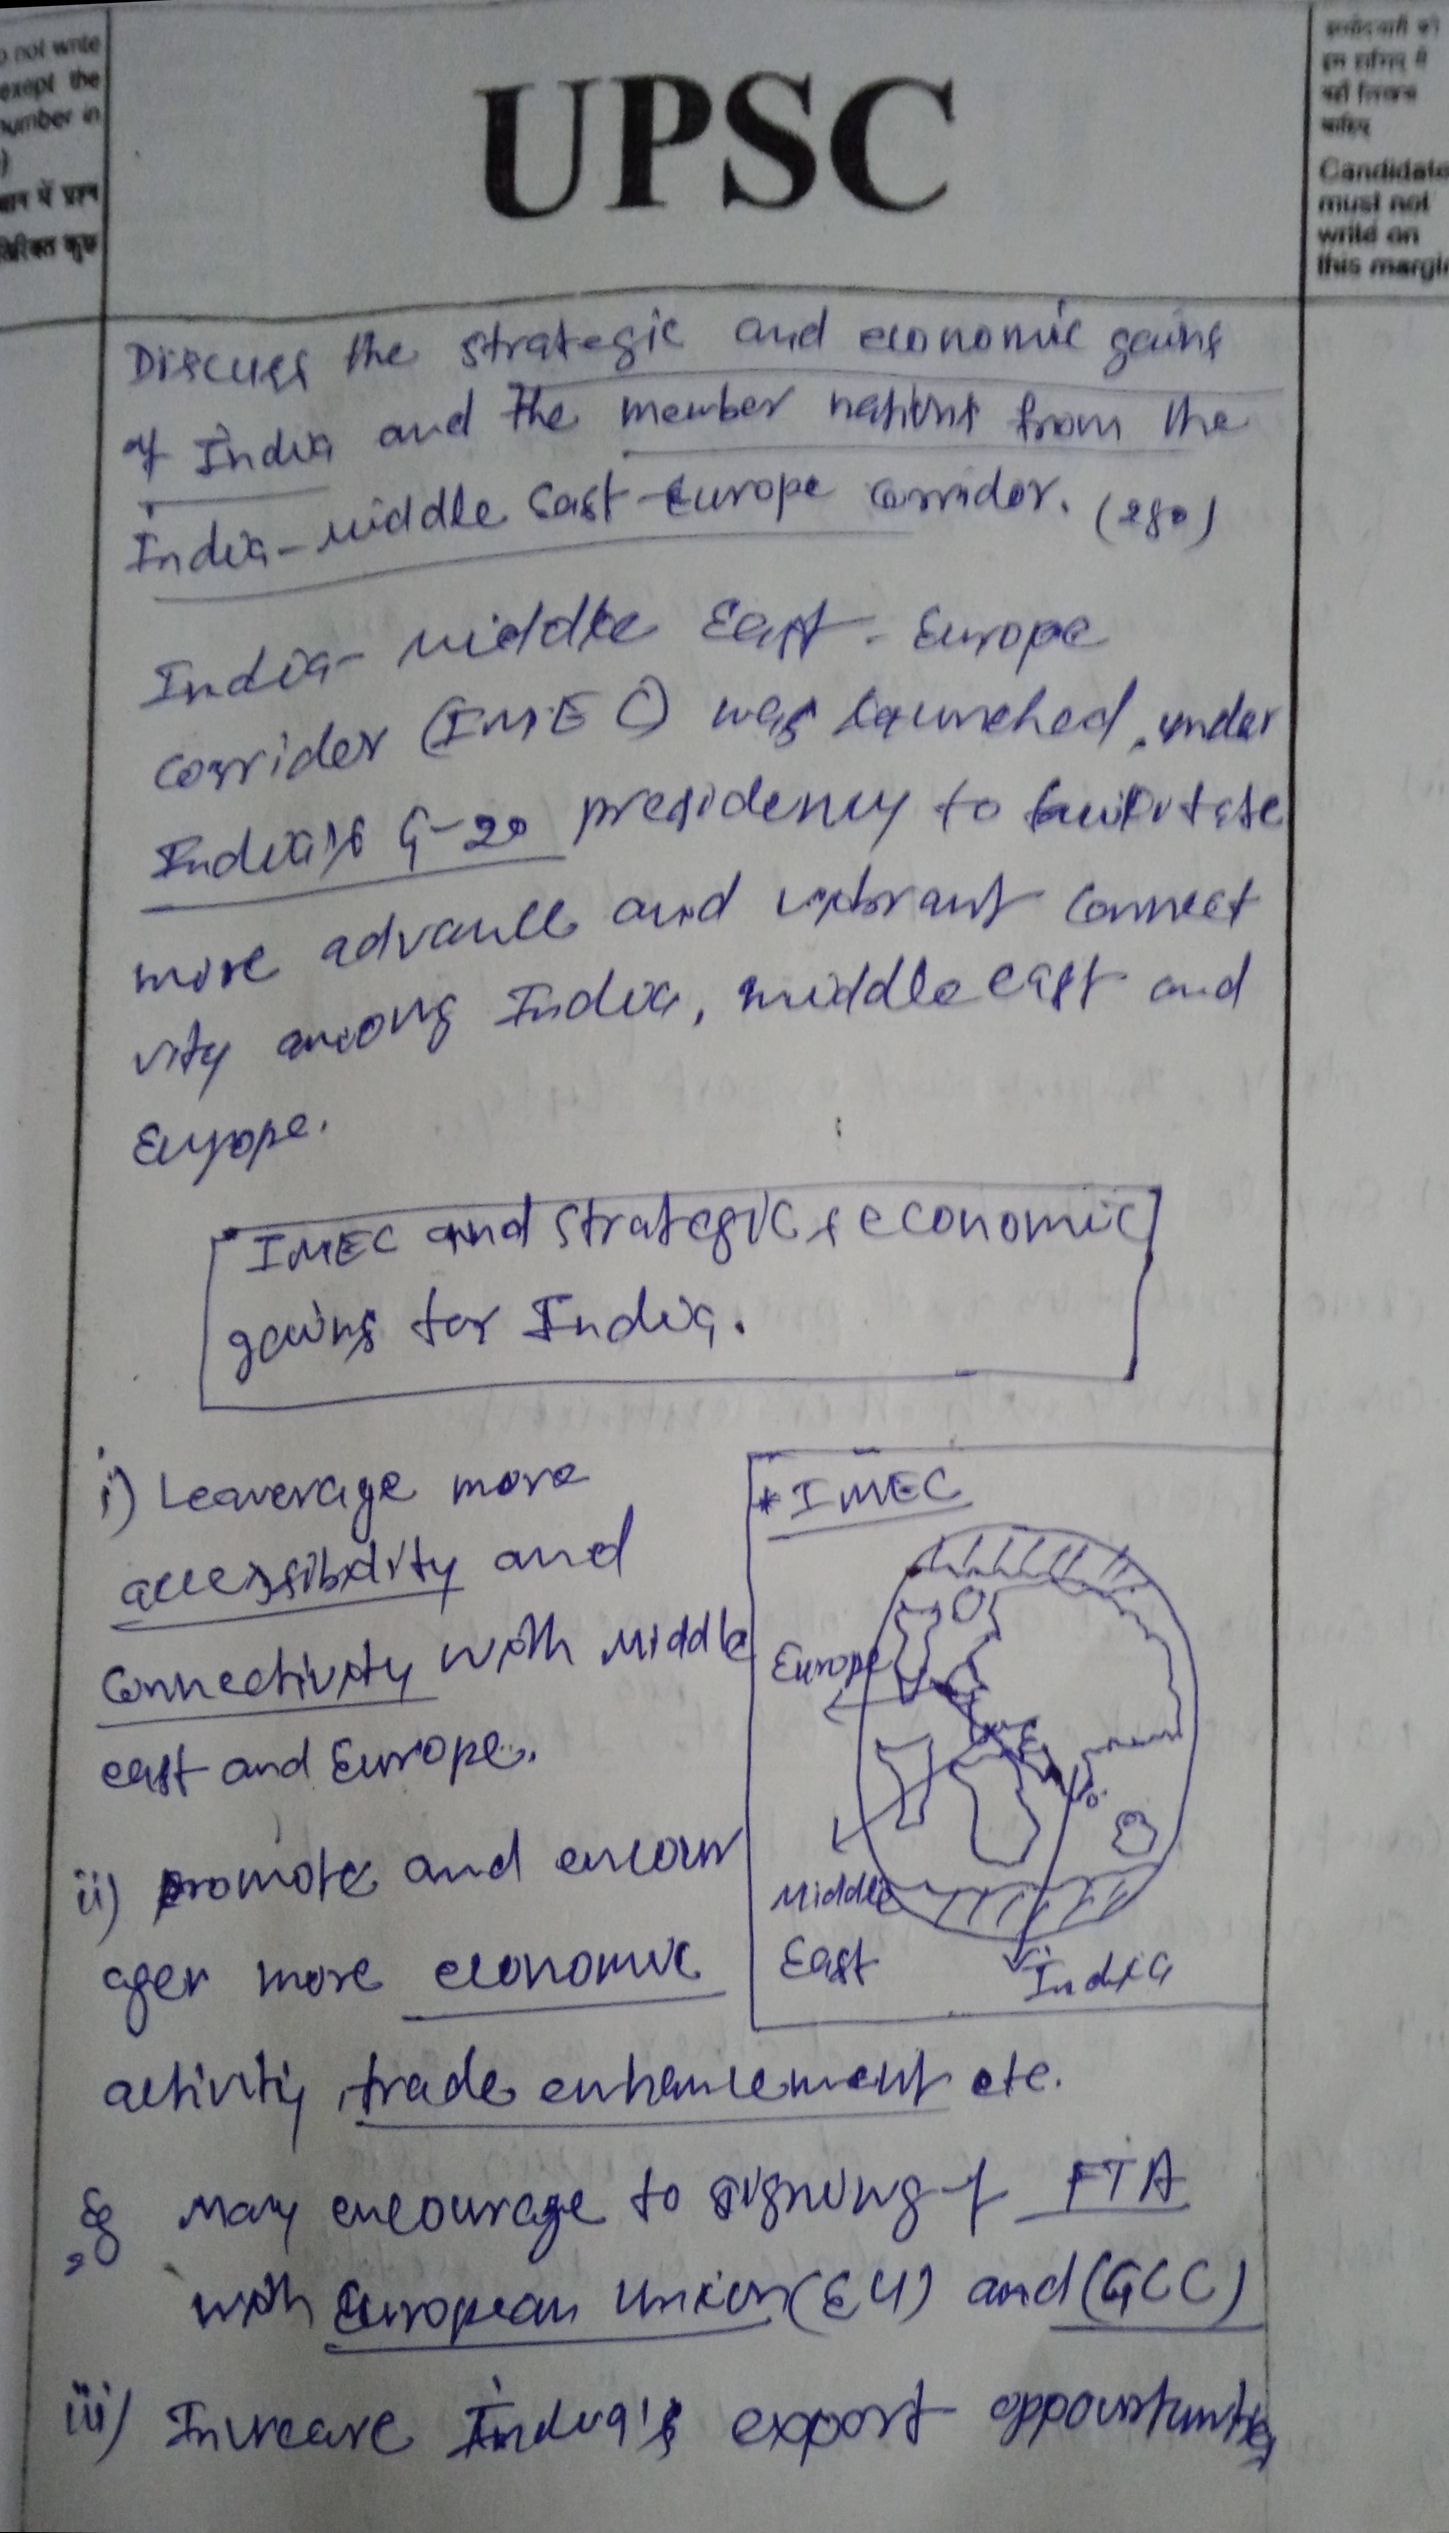 o not write
exept the
number in
)
UPSC
Candidate
must not
write on
this margi
Discuss the strategic and economic gains
of India and the member nations from the
India-middle East-Europe corridor. (250)
India-middle East-Europe
corrider (IMEC) was launched, under
India's G-20 presidency to facilitate
more advance and vibrant connect
vity among India, middle east and
Europe.
* IMEC and strategic & economic
gains for India.
i) Leaverage more
accessibility and
connectivity with Middle
east and Europe.
* IMEC
Europe
IMEC
Middle
East
India
ii) promote and encour
ager more economic
activity, trade enhancement etc.
eg, May encourage to signing of FTA
with European Union (EU) and (GCC)
iii) Increase India's export opportunities